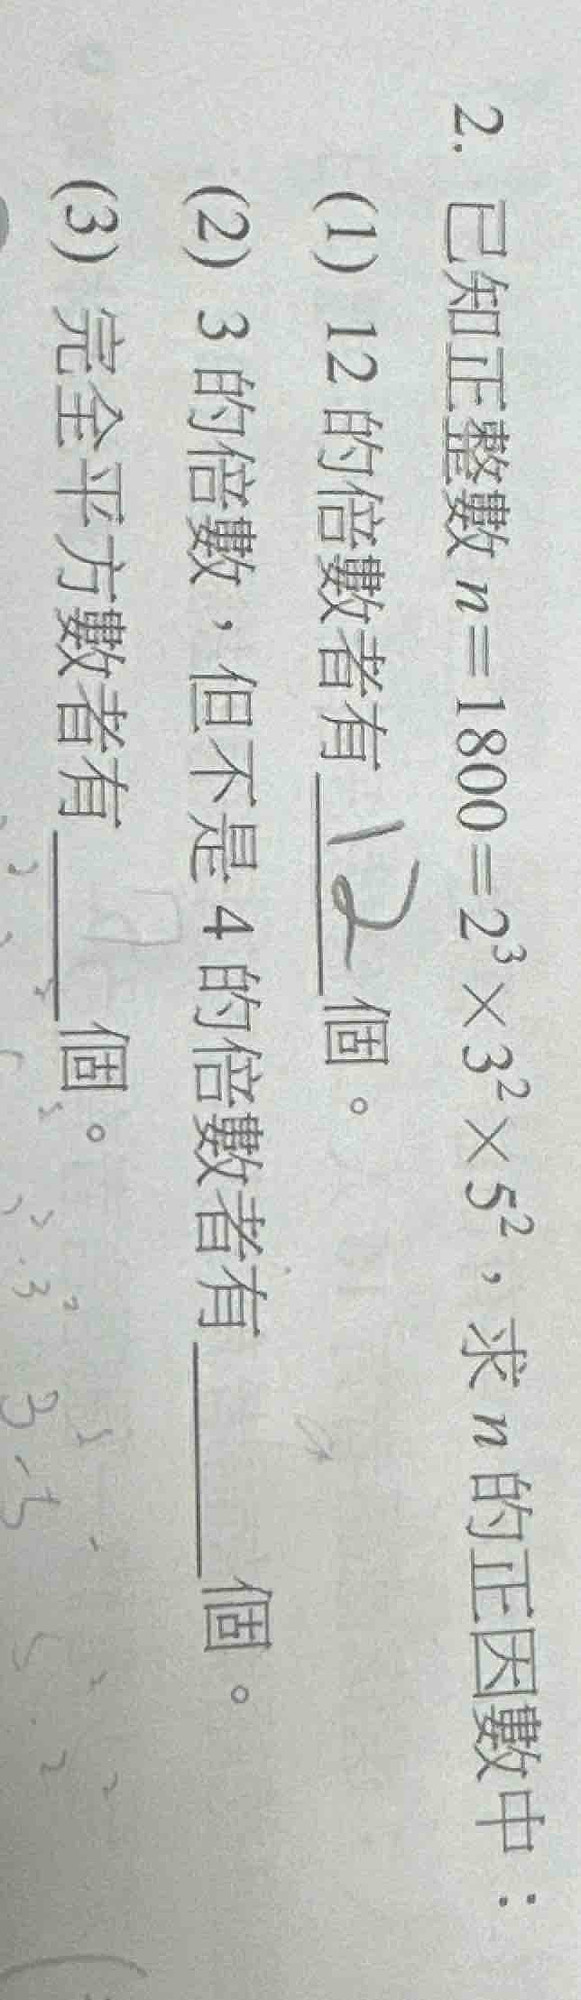 2. 已知正整數 n=1800=2³×3²×5²，求 n 的正因數中：
(1) 12 的倍數者有 12 個。
(2) 3 的倍數，但不是 4 的倍數者有＿＿＿個。
(3) 完全平方數者有＿＿＿個。